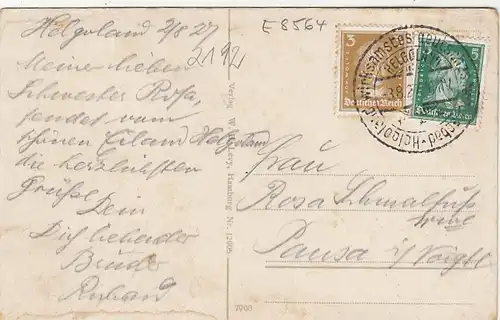 Helgoland 2/8 27
Meiner lieben
Schwester Rosa,
sendet vom
schönen Eiland Helgoland
die herzlichsten
Grüße
Dein
Dich liebender
Bruder
E 8564
2192
Verlag W. Hamburg Nr. 12605
3
Deutsches Reich
HELGOLAND
Frau
Rosa Schmalfuß
Pausa i/Voigtl
7900